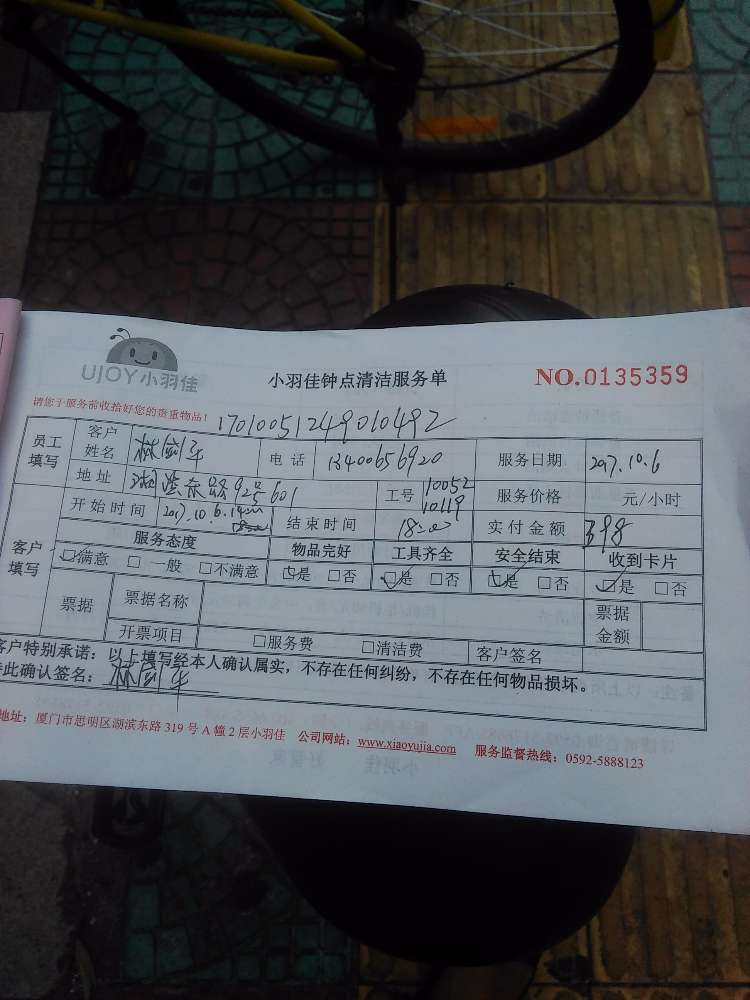 UJOY小羽佳
小羽佳钟点清洁服务单
NO.0135359
请您于服务前收拾好您的贵重物品!
1701005124901049​2
员工填写 客户姓名 林剑平 电话 13400656920 服务日期 2017.10.6
地址 湖滨东路92号601 工号 10052 10119 服务价格 元/小时
客户填写 开始时间 2017.10.6.14:00 18:00 结束时间 18:00 实付金额 398
服务态度 物品完好 工具齐全 安全结束 收到卡片
☑满意 □一般 □不满意 ☑是 □否 ☑是 □否 ☑是 □否 ☑是 □否
票据 票据名称 票据金额
开票项目 □服务费 □清洁费 客户签名
客户特别承诺：以上填写经本人确认属实，不存在任何纠纷，不存在任何物品损坏。
此确认签名：林剑平
地址：厦门市思明区湖滨东路319号A幢2层小羽佳 公司网站：www.xiaoyujia.com 服务监督热线：0592-5888123